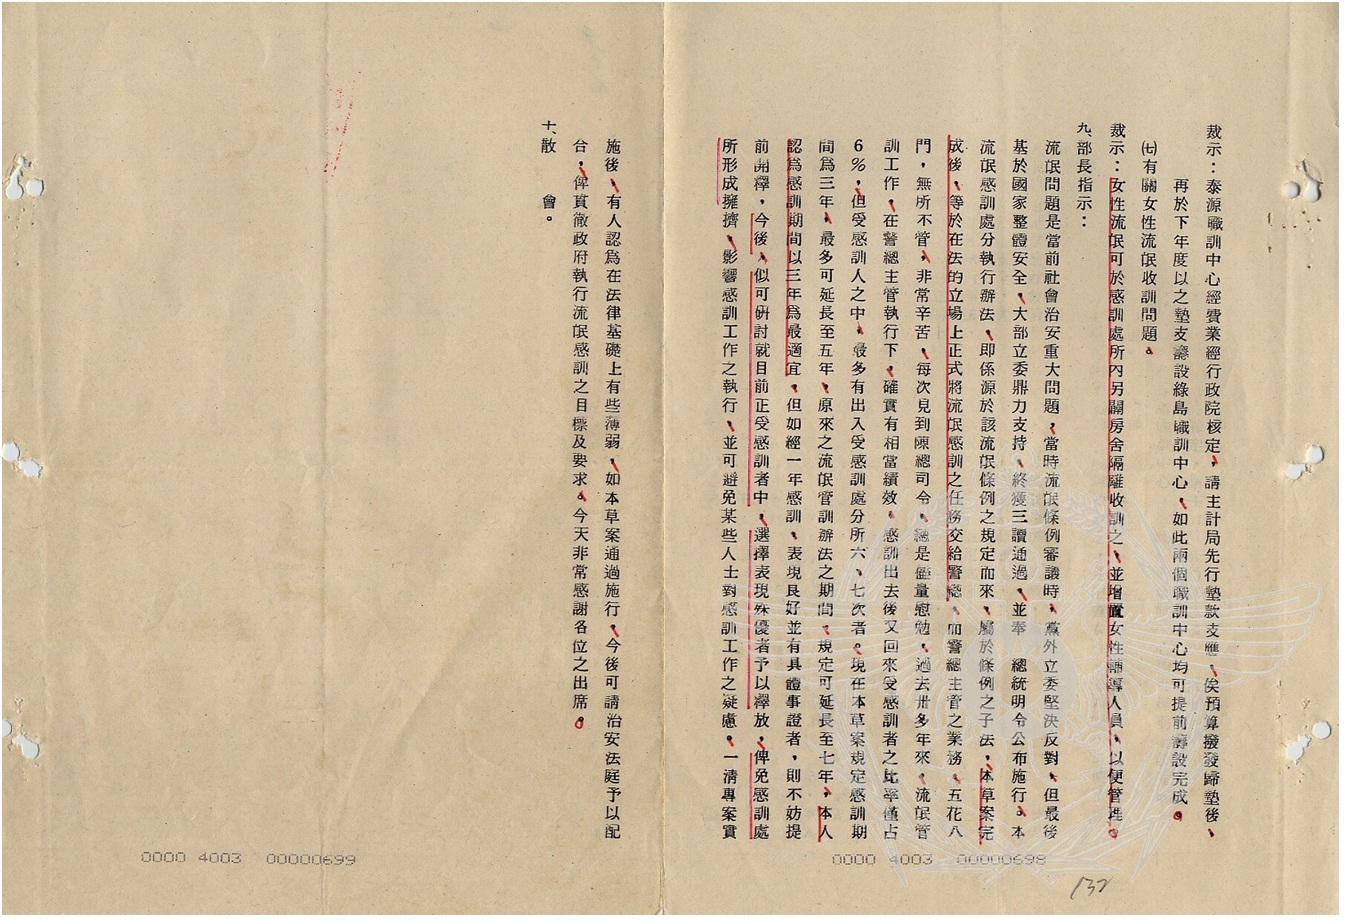 裁示：泰源職訓中心經費業經行政院核定，請主計局先行墊款支應，俟預算撥發歸墊後，
再於下年度以之墊支籌設綠島職訓中心，如此兩個職訓中心均可提前籌設完成。
㈦有關女性流氓收訓問題。
裁示：女性流氓可於感訓處所內另闢房舍隔離收訓之，並增置女性輔導人員，以便管理。
九、部長指示：
流氓問題是當前社會治安重大問題，當時流氓條例審議時，黨外立委堅決反對，但最後
基於國家整體安全，大部立委鼎力支持，終獲三讀通過，並奉　總統明令公布施行。本
流氓感訓處分執行辦法，即係源於該流氓條例之規定而來，屬於條例之子法，本草案完
成後，等於在法的立場上正式將流氓感訓之任務交給警總，而警總主管之業務，五花八
門，無所不管，非常辛苦，每次見到陳總司令，總是儘量慰勉，過去卅多年來，流氓管
訓工作，在警總主管執行下，確實有相當績效，感訓出去後又回來受感訓者之比率僅占
6%，但受感訓人之中，最多有出入受感訓處分所六、七次者。現在本草案規定感訓期
間為三年，最多可延長至五年，原來之流氓管訓辦法之期間，規定可延長至七年，本人
認為感訓期間以三年為最適宜，但如經一年感訓，表現良好並有具體事證者，則不妨提
前開釋，今後，似可研討就目前正受感訓者中，選擇表現殊優者予以釋放，俾免感訓處
所形成擁擠，影響感訓工作之執行，並可避免某些人士對感訓工作之疑慮。一清專案實
0000 4003 00000698
132
施後，有人認為在法律基礎上有些薄弱，如本草案通過施行，今後可請治安法庭予以配
合，俾貫徹政府執行流氓感訓之目標及要求。今天非常感謝各位之出席。
十、散　會。
0000 4003 00000699